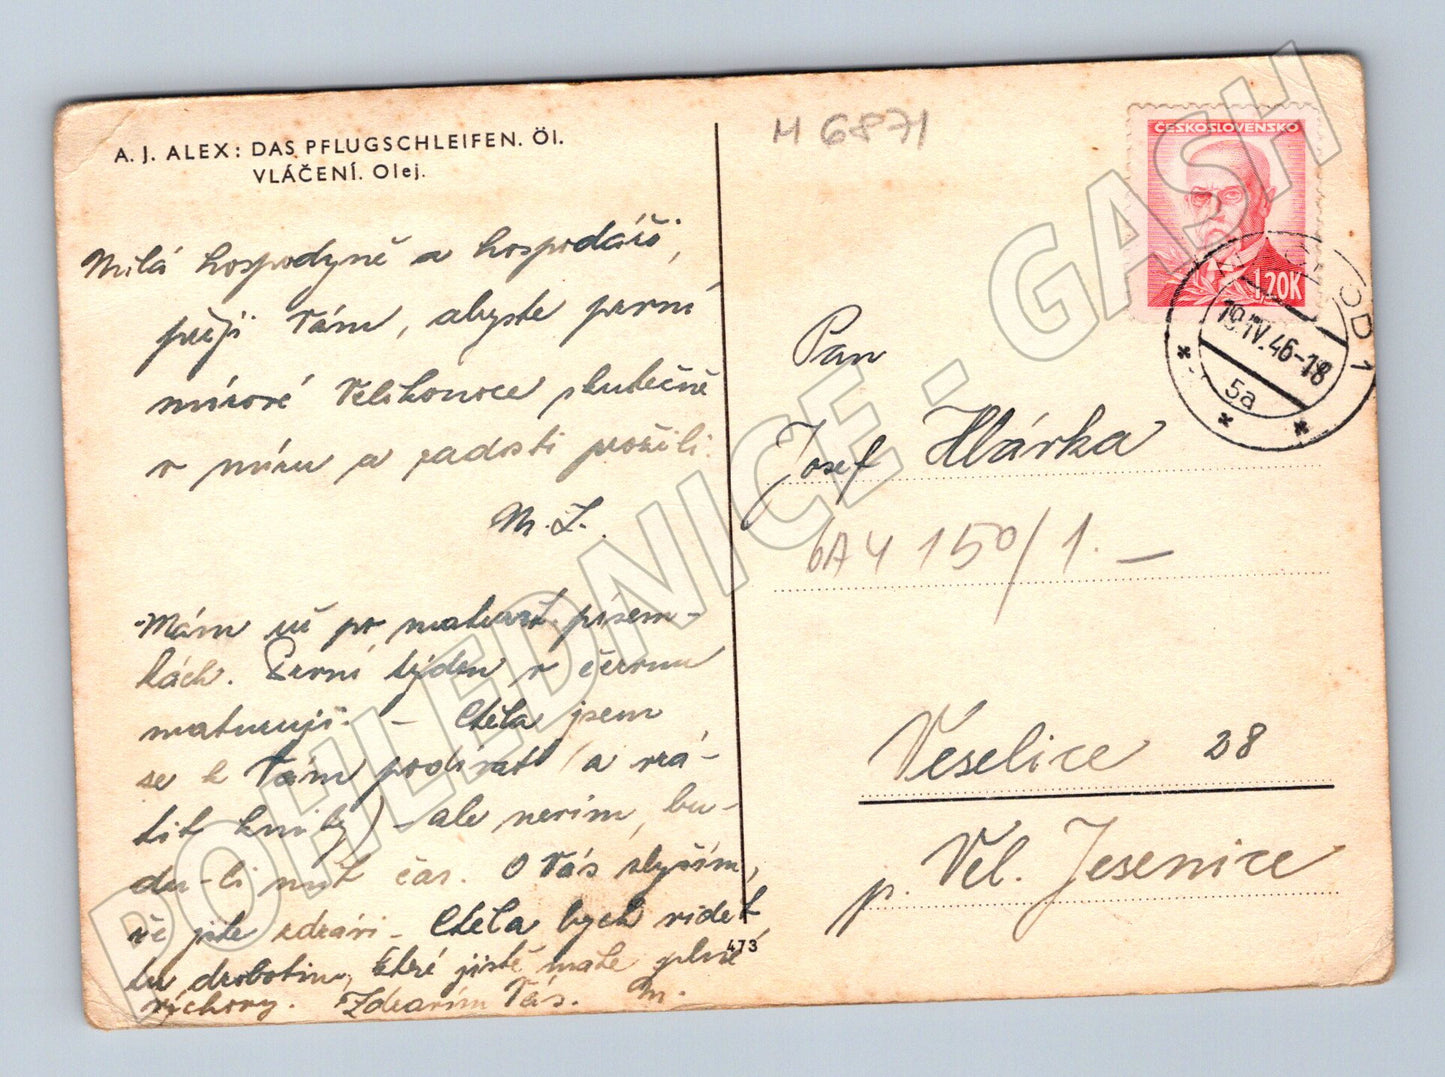 A. J. ALEX: DAS PFLUGSCHLEIFEN. Öl.
VLÁČENÍ. Olej.
Milá hospodyně a hospodáři,
přeji Vám, abyste první
mírové Velikonoce skutečně
v míru a radosti prožili.
M. L.
Mám už po maturit. písem-
kách. První týden v červnu
maturuji. - Chtěla jsem
se k Vám podívat (a vrá-
tit knihy) - ale nevím, bu-
du-li mít čas. O Vás slyším,
že jste zdrávi. Chtěla bych videt
tu drobotinu, které jistě máte plné
výchovy. Zdravím Vás. M.
473
M 6871
ČESKOSLOVENSKO
1,20K
OD 1
19.IV.46-18
5a
Pan
Josef Hlávka
6A4 150/1.-
Veselice 28
p. Vel. Jesenice
POHLEDNICE - GASH